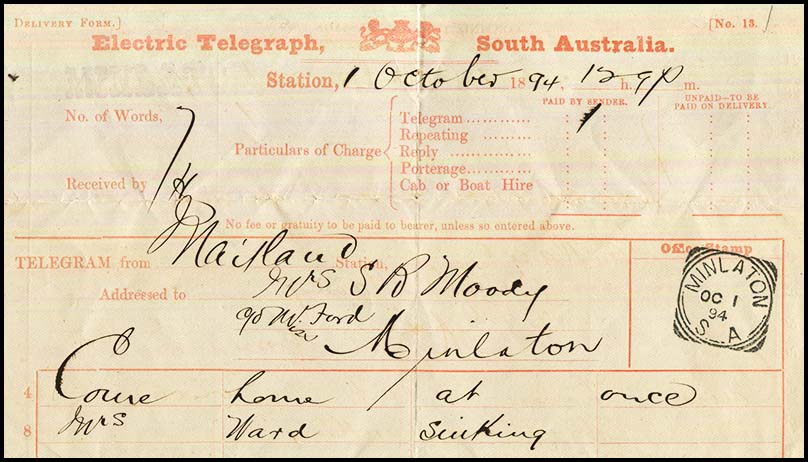 DELIVERY FORM.]
[No. 13.
Electric Telegraph, South Australia.
Station, 1 October 1894, 12 h. 9 p m.
PAID BY SENDER. UNPAID—TO BE PAID ON DELIVERY.
No. of Words, 7
Particulars of Charge
Telegram
Repeating
Reply
Porterage
Cab or Boat Hire
Received by H
No fee or gratuity to be paid to bearer, unless so entered above.
TELEGRAM from Maitland Station,
Office Stamp
MINLATON
OC 1
94
S A
Addressed to Mrs S B Moody
Ford
Minlaton
4 Come home at once
8 Mrs Ward sinking